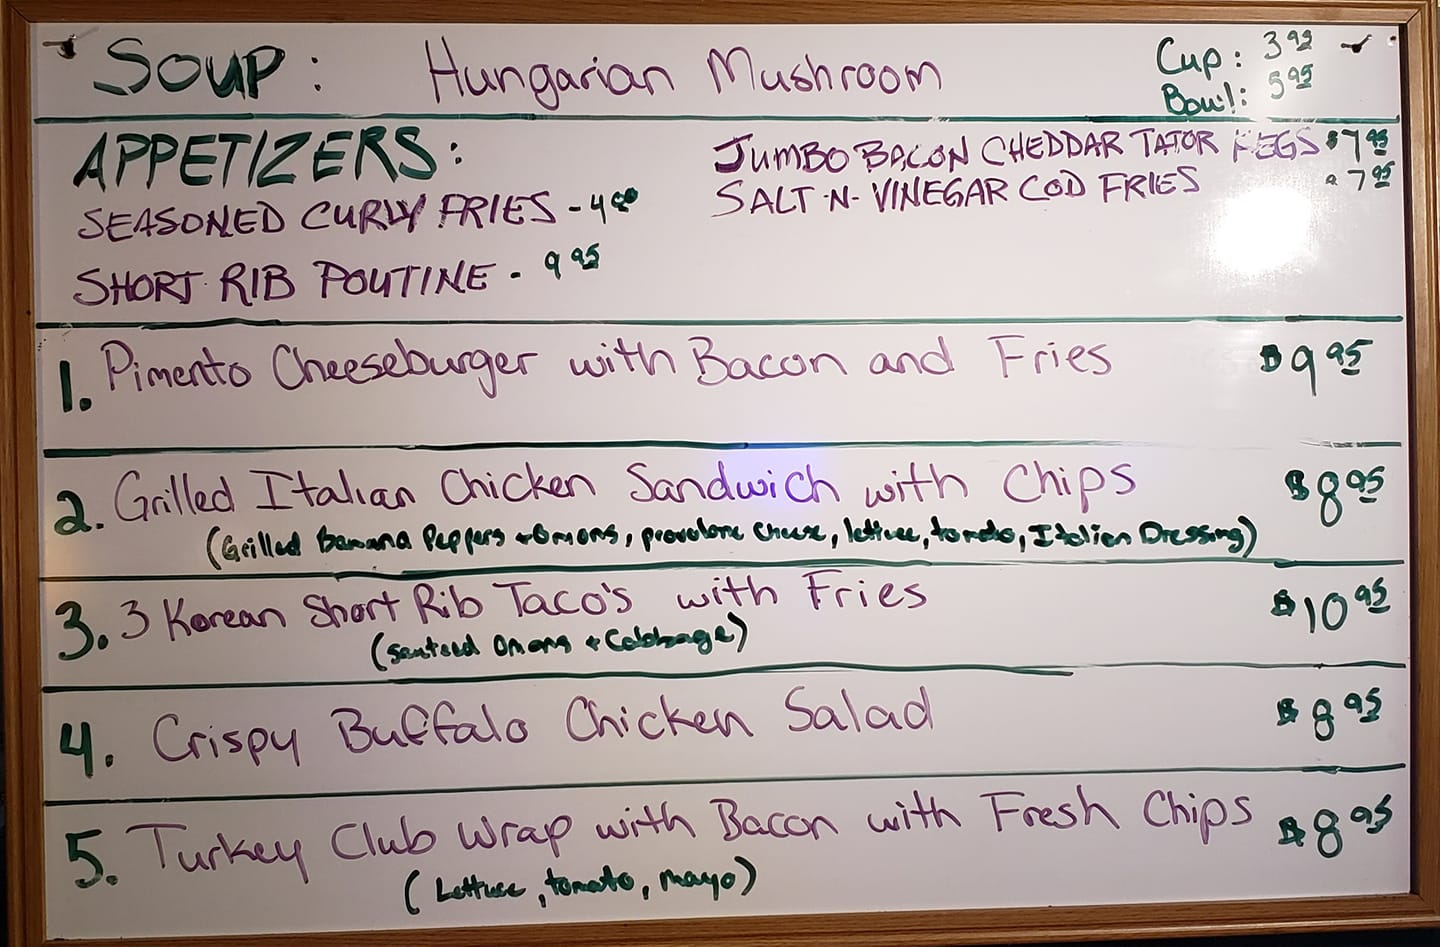 Soup: Hungarian Mushroom Cup: 3 95
Bowl: 5 95
APPETIZERS:
JUMBO BACON CHEDDAR TATOR KEGS $7 95
SALT-N-VINEGAR COD FRIES 7 95
SEASONED CURLY FRIES - 4 00
SHORT RIB POUTINE - 9 95
1. Pimento Cheeseburger with Bacon and Fries $9 95
2. Grilled Italian Chicken Sandwich with Chips $8 95
(Grilled Banana Peppers + Onions, provolone cheese, lettuce, tomato, Italian Dressing)
3. 3 Korean Short Rib Taco's with Fries $10 95
(Sauteed Onions + Cabbage)
4. Crispy Buffalo Chicken Salad $8 95
5. Turkey Club Wrap with Bacon with Fresh Chips $8 95
(Lettuce, tomato, mayo)